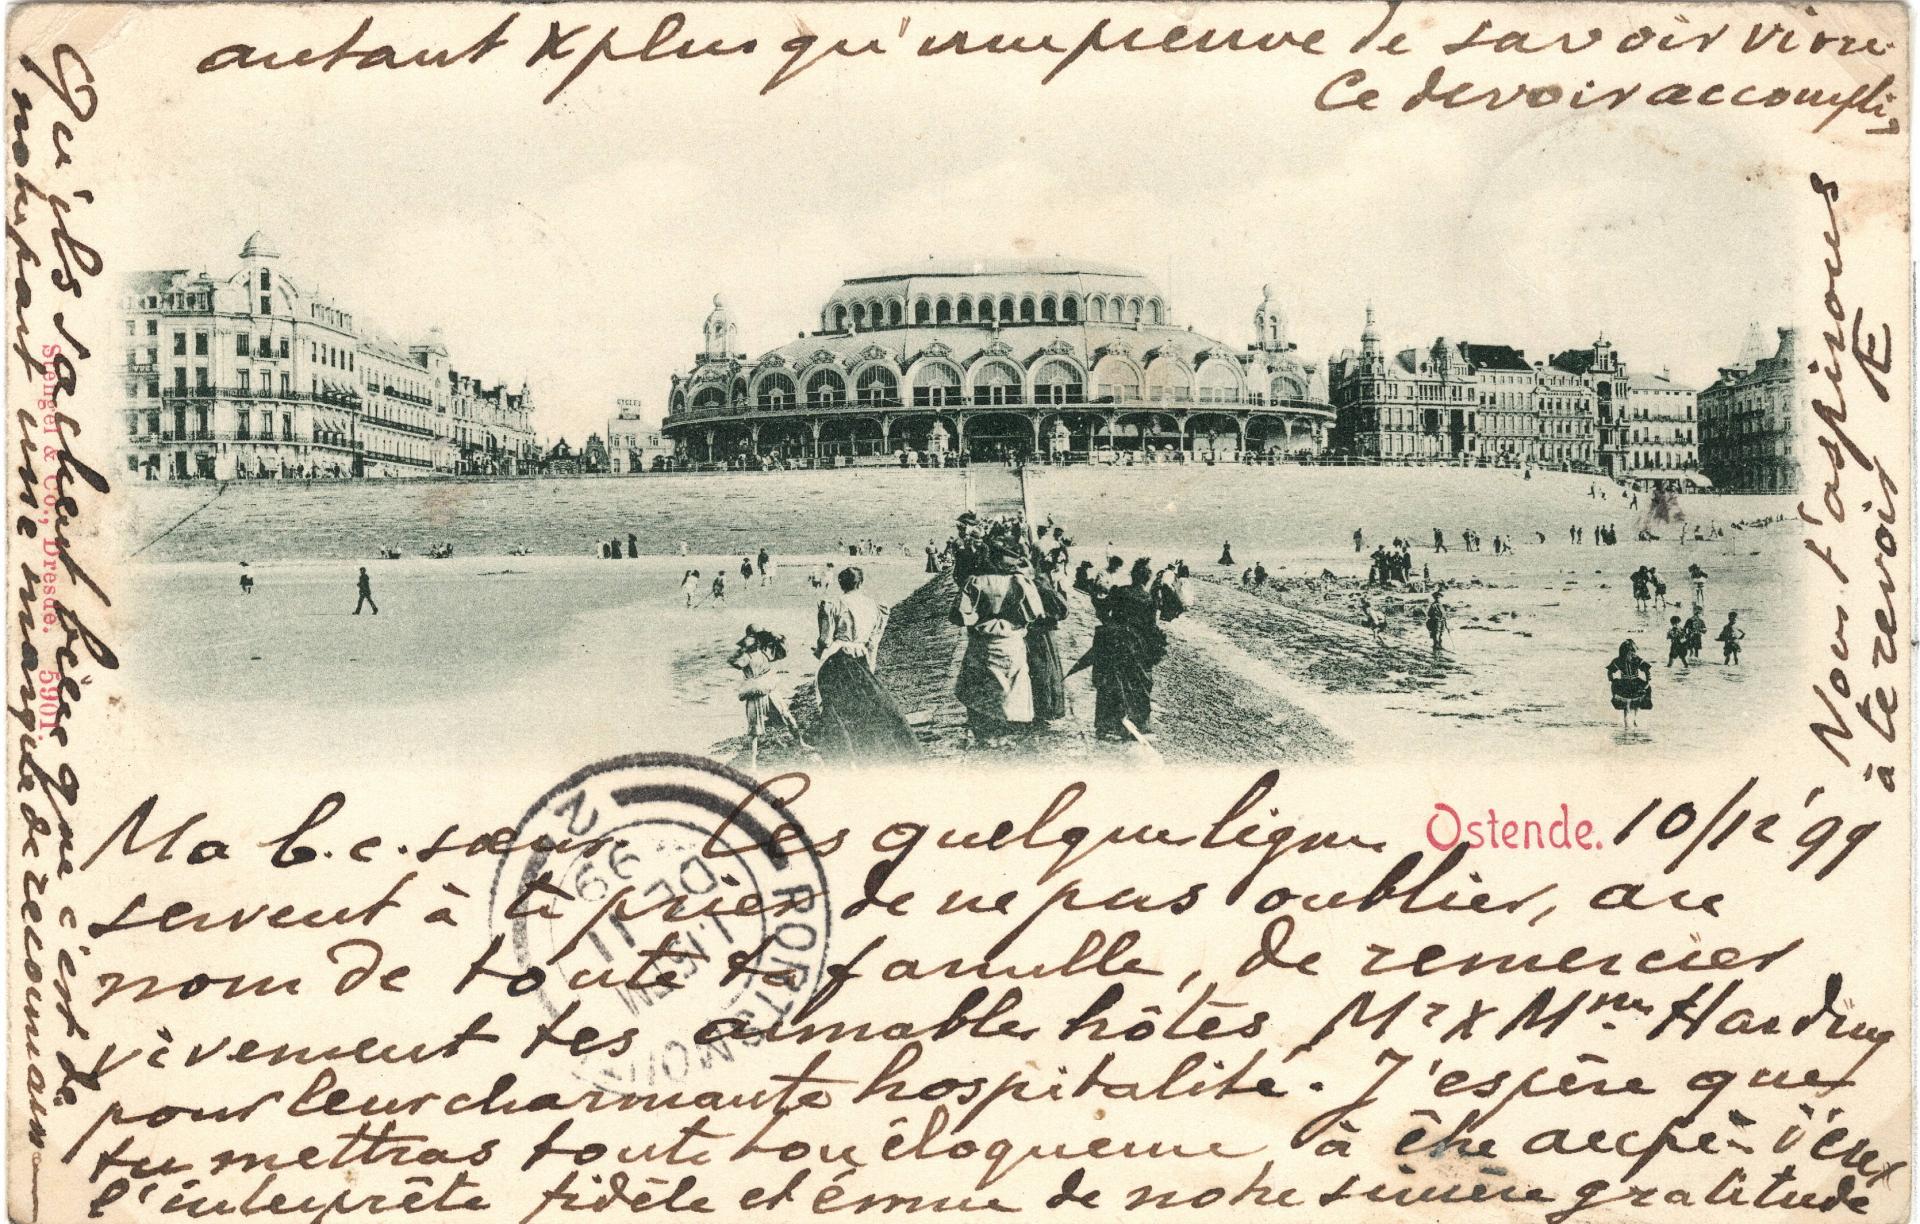 Ostende. 10/12 '99
Ma b. c. sœur. Ces quelques lignes
servent à te prier de ne pas oublier, au
nom de toute ta famille, de remercier
vivement tes aimables hôtes Mr & Mme Harding
pour leur charmante hospitalité. J'espère que
tu mettras toute ton éloquence à être auprès d'eux
l'interprète fidèle et émue de notre sincère gratitude
Qu'ils sachent bien que c'est de
notre part une marque de reconnaiss
autant & plus qu'une preuve de savoir vivre.
Ce devoir accompli,
Nous t'aspirons
à te revoir E
Stengel & Co., Dresde. 5901.
CYCLES
PORTSMOUTH
11
DE
99
2